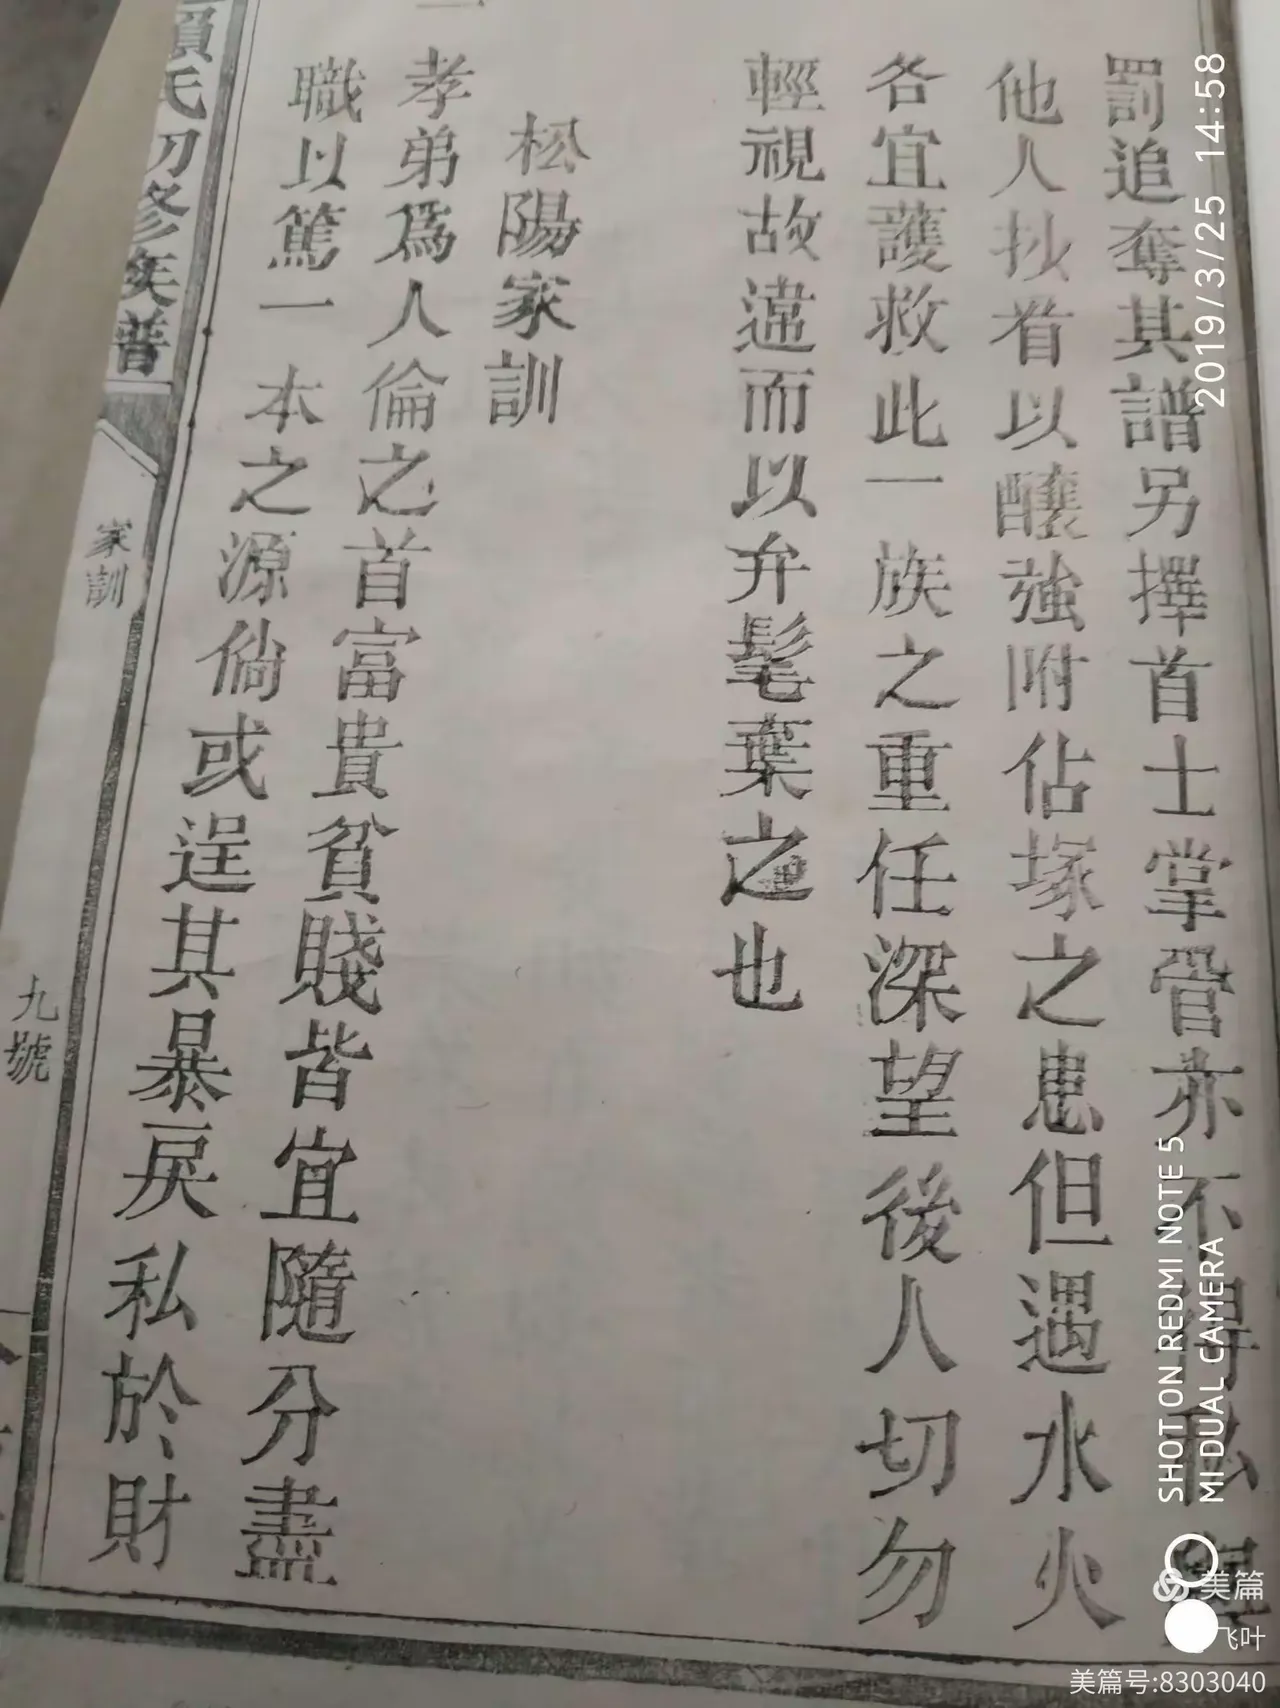 罰追奪其譜另擇首士掌管亦不得私與
他人抄着以釀強附佔塚之患但遇水火
各宜護救此一族之重任深望後人切勿
輕視故違而以弁髦葉之也
松陽家訓
一
孝弟爲人倫之首富貴貧賤皆宜隨分盡
職以篤一本之源倘或逞其暴戾私於財
賴氏初修族譜
家訓
九號
2019/3/25 14:58
SHOT ON REDMI NOTE 5
MI DUAL CAMERA
美篇
飞叶
美篇号:8303040